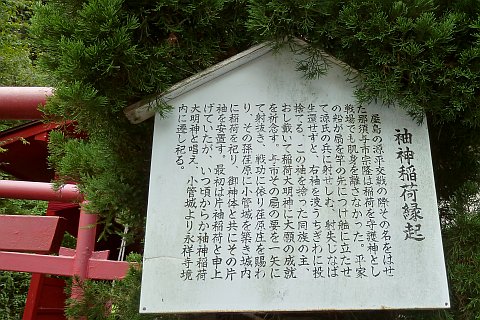 袖神稲荷縁起
屋島の源平交戦の際その名をはせ
た那須与市宗隆は稲荷を守護神とし
戦場でも肌身を離さなかった。平家
の紛が扇を竿の先につけ艦に立たせ
て源氏の兵に射せしむ、射失しなば
生還せずと、右袖を波うちぎわに投
捨てる。この袖を捨った同族の主、
おし戴いて稲荷大明神に大願の成就
を祈念す。与市その扇の要を一矢に
て射抜き、戦功に依り荏原庄を賜わ
り、その孫荏原に小菅城を築き城内
に稲荷を祀り、御神体と共にその片
袖を安置す。最初は片袖稲荷と申上
げていたが、いつ頃からか袖神稲荷
大明神と唱え、小菅城より永祥寺境
内に遷し祀る。